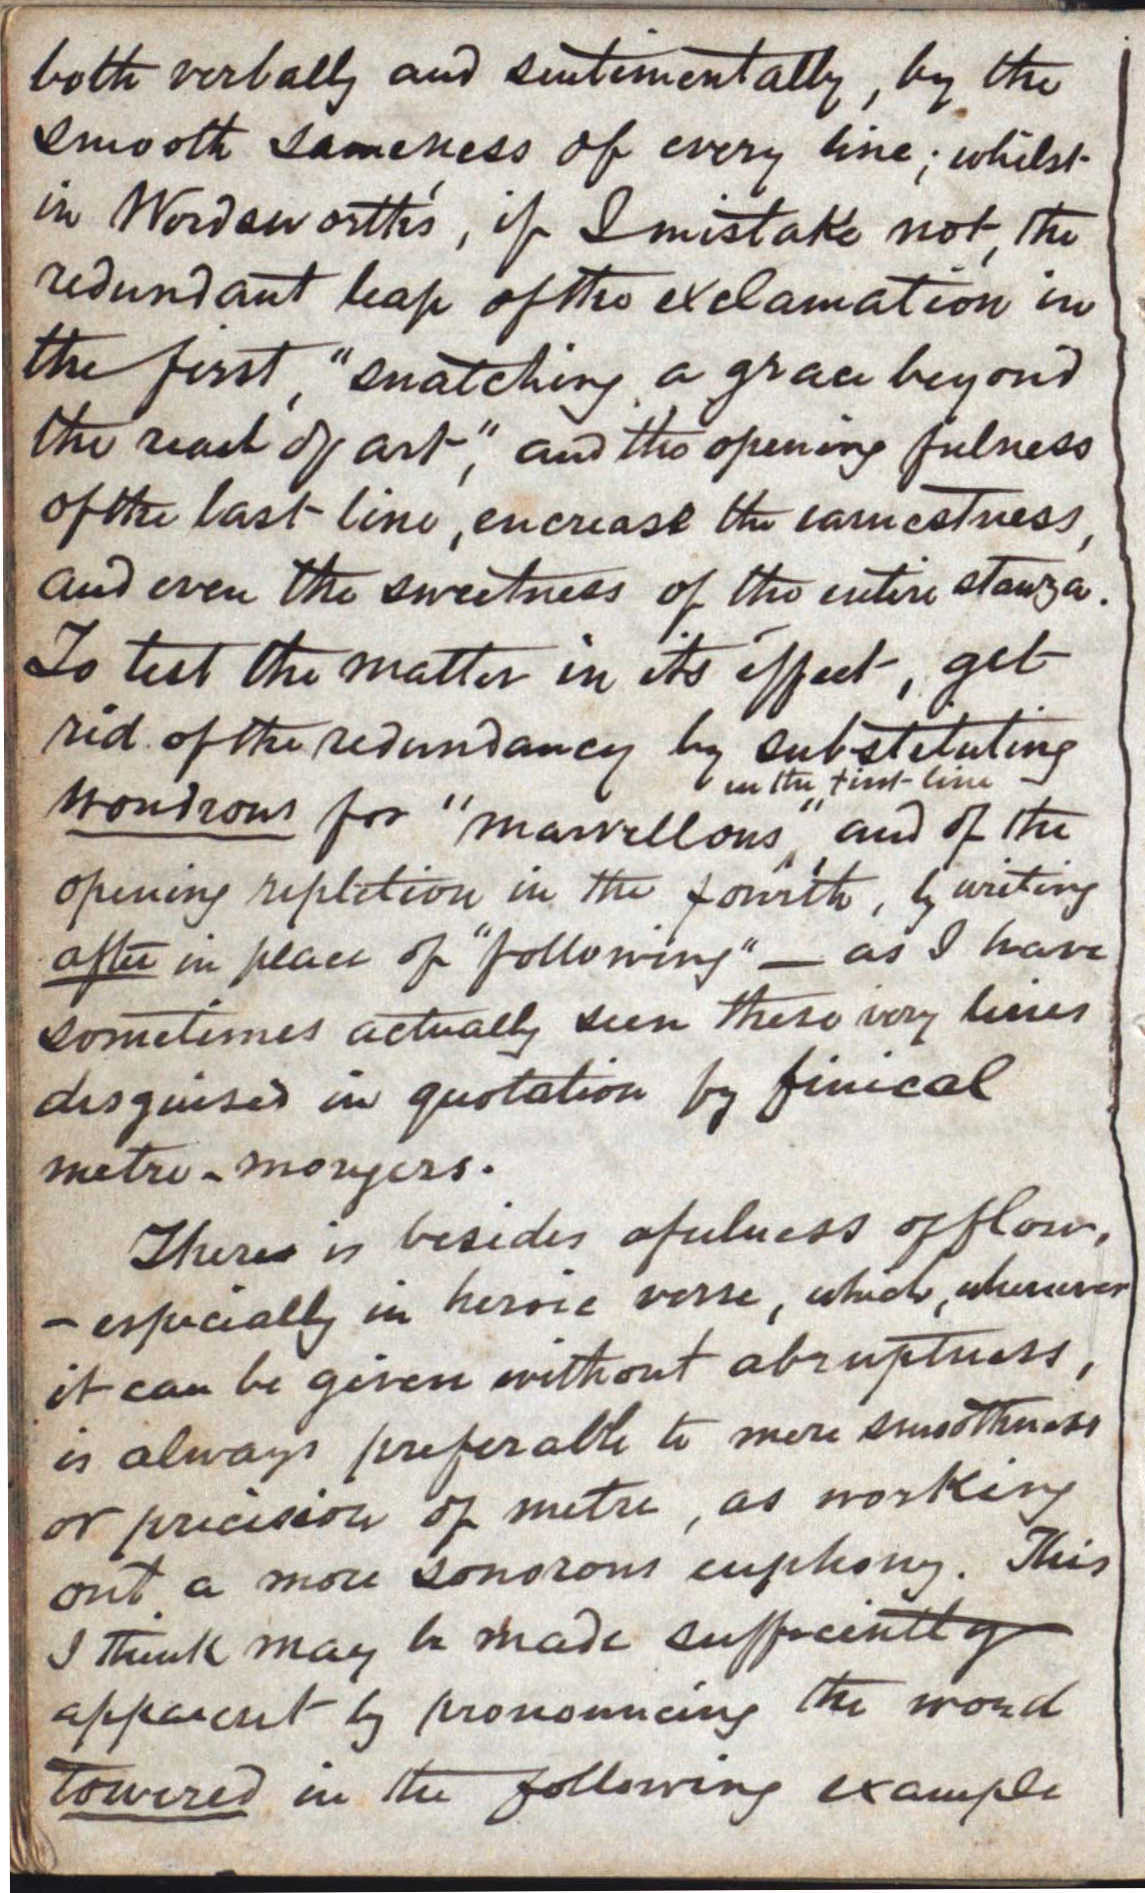 both verbally and sentimentally, by the
smooth sameness of every line; whilst
in Wordsworth's, if I mistake not, the
redundant leap of the exclamation in
the first, "snatching a grace beyond
the reach of art," and the opening fulness
of the last line, encrease the earnestness,
and even the sweetness of the entire stanza.
To test the matter in its effect, get
rid of the redundancy by substituting
in the first line
wondrous for "marvellous", and of the
opening repletion in the fourth, by writing
after in place of "following" — as I have
sometimes actually seen these very lines
disguised in quotation by finical
metre-mongers.
There is besides a fulness of flow,
- especially in heroic verse, which, whenever
it can be given without abruptness,
is always preferable to mere smoothness
or precision of metre, as working
out a more sonorous euphony. This
I think may be made sufficiently
apparent by pronouncing the word
towered in the following example